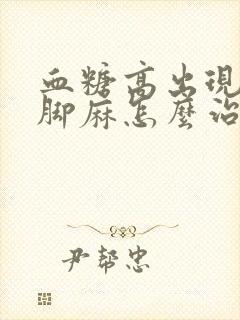 血糖高出現
脚麻怎麼治
尹帮忠